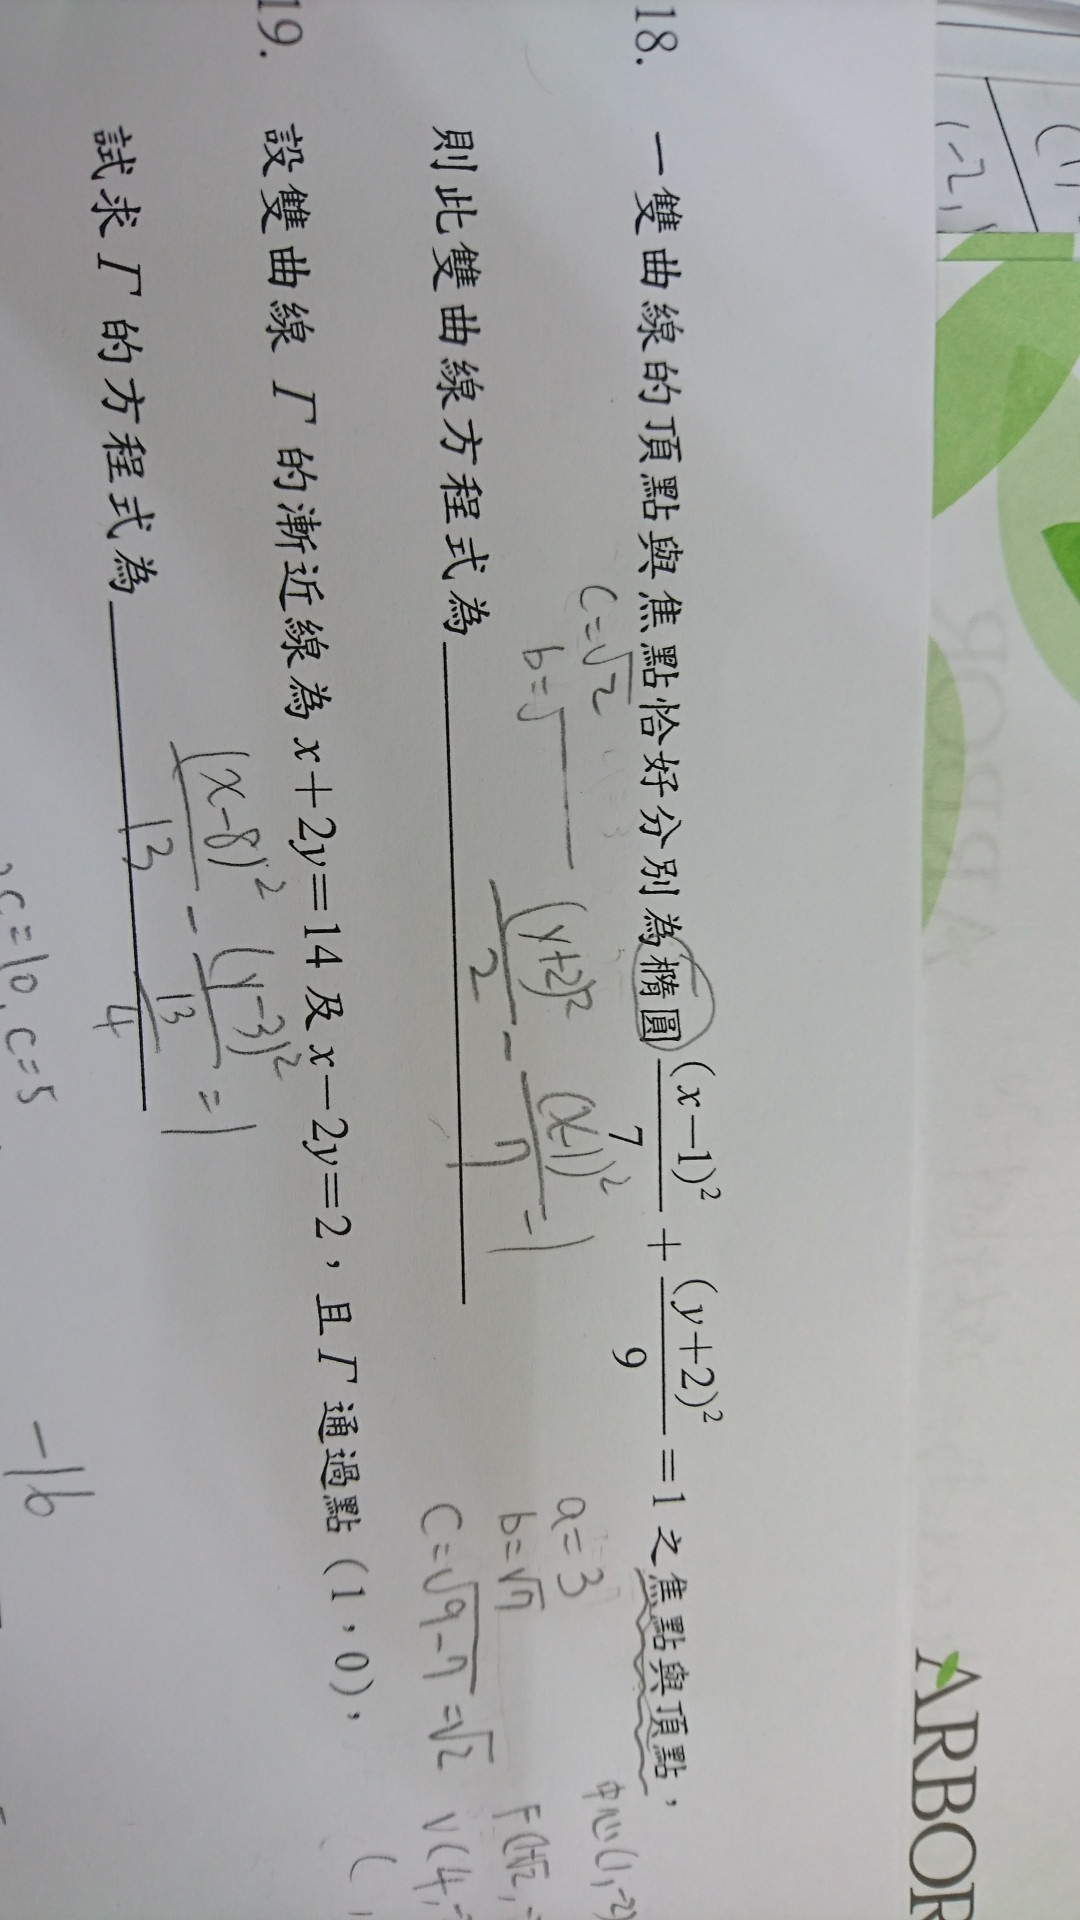 ARBOR
(-2,
18. 一雙曲線的頂點與焦點恰好分別為橢圓 (x-1)²/7 + (y+2)²/9 = 1 之焦點與頂點，
c=√2
b=√
a=3
b=√7
c=√9-7=√2
中心(1,-2)
V(4,-
(y+2)²/2 - (x-1)²/7 =1
則此雙曲線方程式為
19. 設雙曲線 Γ 的漸近線為 x+2y=14 及 x-2y=2，且 Γ 通過點 (1，0)，
(x-8)²/13 - (y-3)²/(13/4) =1
試求 Γ 的方程式為
c=10, c=5
-16